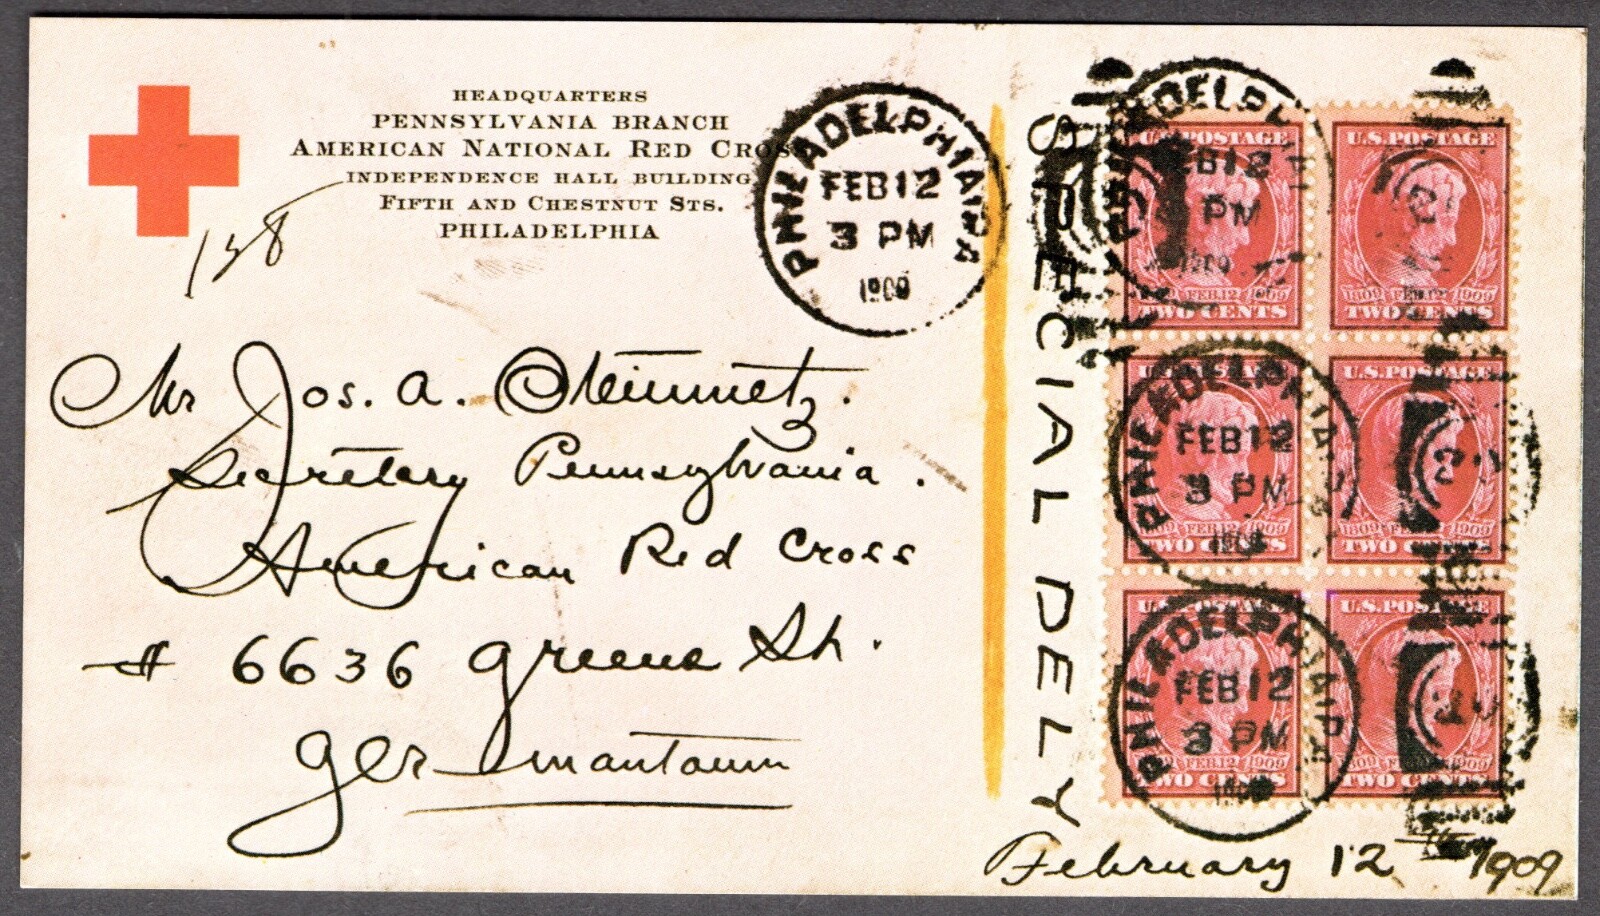 HEADQUARTERS
PENNSYLVANIA BRANCH
AMERICAN NATIONAL RED CROSS
INDEPENDENCE HALL BUILDING
FIFTH AND CHESTNUT STS.
PHILADELPHIA
138
PHILADELPHIA, PA
FEB 12
3 PM
1909
Mr Jos. A. Steinmetz.
Secretary Pennsylvania.
American Red Cross
# 6636 Greene St.
Germantown
SPECIAL DELY
PHILADELPHIA, PA
FEB 12
3 PM
1909
U.S. POSTAGE
1809 FEB. 12 1909
TWO CENTS
U.S. POSTAGE
1809 FEB. 12 1909
TWO CENTS
PHILADELPHIA, PA
FEB 12
3 PM
1909
U.S. POSTAGE
1809 FEB. 12 1909
TWO CENTS
U.S. POSTAGE
1809 FEB. 12 1909
TWO CENTS
PHILADELPHIA, PA
FEB 12
3 PM
1909
U.S. POSTAGE
1809 FEB. 12 1909
TWO CENTS
U.S. POSTAGE
1809 FEB. 12 1909
TWO CENTS
February 12th 1909